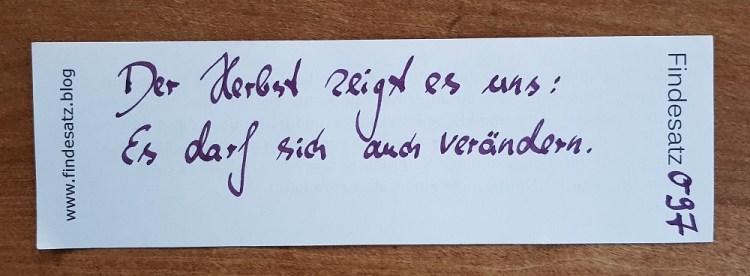 www.findesatz.blog
Der Herbst zeigt es uns:
Es darf sich auch verändern.
Findesatz 097